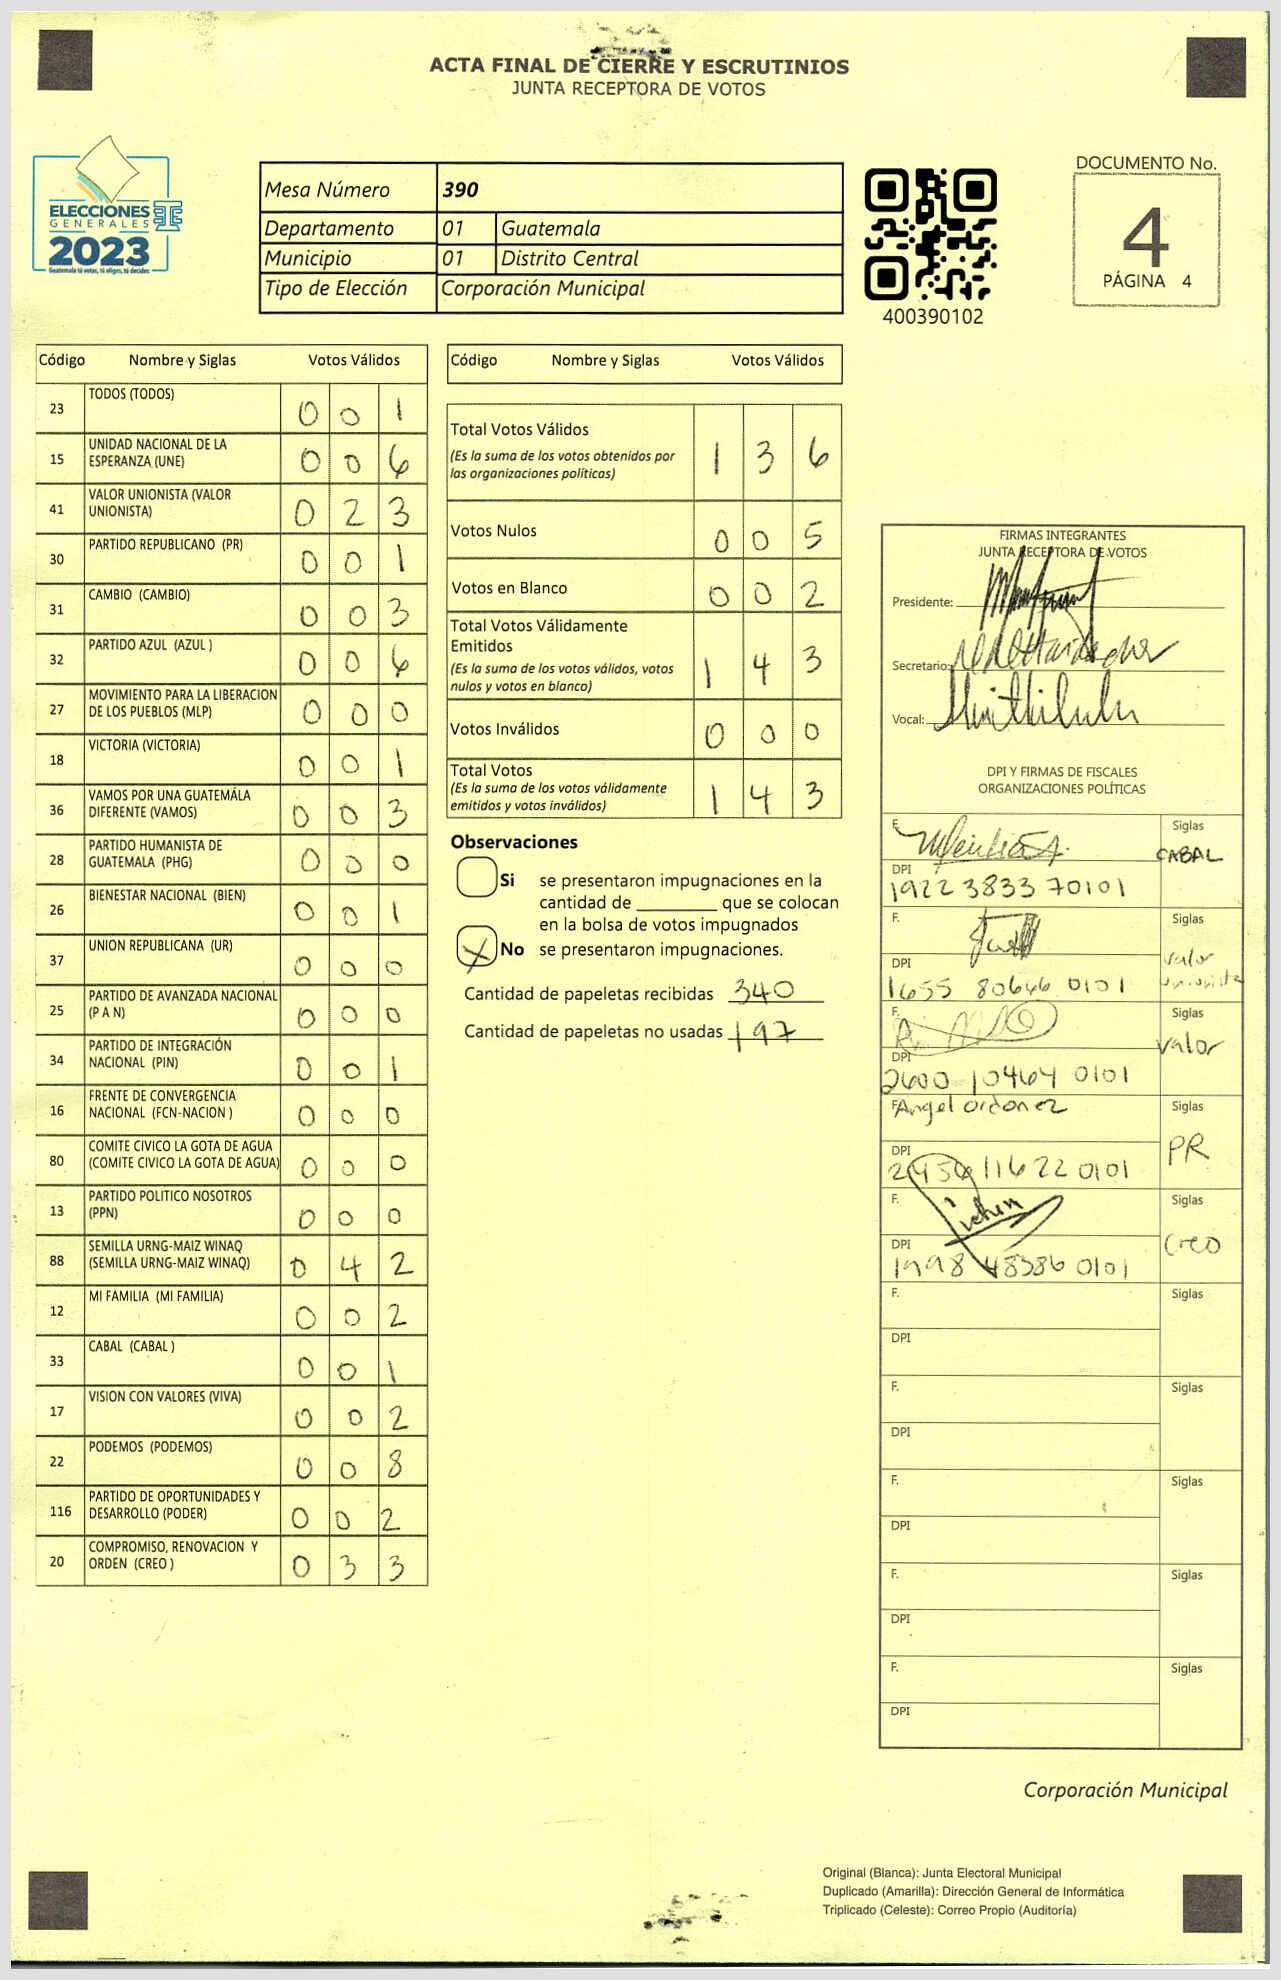 ACTA FINAL DE CIERRE Y ESCRUTINIOS
JUNTA RECEPTORA DE VOTOS
ELECCIONES
GENERALES
2023
Guatemala tú votas, tú eliges, tú decides
Mesa Número 390
Departamento 01 Guatemala
Municipio 01 Distrito Central
Tipo de Elección Corporación Municipal
400390102
DOCUMENTO No.
4
PÁGINA 4
Código Nombre y Siglas Votos Válidos
23 TODOS (TODOS) 0 0 1
15 UNIDAD NACIONAL DE LA
ESPERANZA (UNE) 0 0 6
41 VALOR UNIONISTA (VALOR
UNIONISTA) 0 2 3
30 PARTIDO REPUBLICANO (PR) 0 0 1
31 CAMBIO (CAMBIO) 0 0 3
32 PARTIDO AZUL (AZUL ) 0 0 6
27 MOVIMIENTO PARA LA LIBERACION
DE LOS PUEBLOS (MLP) 0 0 0
18 VICTORIA (VICTORIA) 0 0 1
36 VAMOS POR UNA GUATEMÁLA
DIFERENTE (VAMOS) 0 0 3
28 PARTIDO HUMANISTA DE
GUATEMALA (PHG) 0 0 0
26 BIENESTAR NACIONAL (BIEN) 0 0 1
37 UNION REPUBLICANA (UR) 0 0 0
25 PARTIDO DE AVANZADA NACIONAL
(P A N) 0 0 0
34 PARTIDO DE INTEGRACIÓN
NACIONAL (PIN) 0 0 1
16 FRENTE DE CONVERGENCIA
NACIONAL (FCN-NACION ) 0 0 0
80 COMITE CIVICO LA GOTA DE AGUA
(COMITE CIVICO LA GOTA DE AGUA) 0 0 0
13 PARTIDO POLITICO NOSOTROS
(PPN) 0 0 0
88 SEMILLA URNG-MAIZ WINAQ
(SEMILLA URNG-MAIZ WINAQ) 0 4 2
12 MI FAMILIA (MI FAMILIA) 0 0 2
33 CABAL (CABAL ) 0 0 1
17 VISION CON VALORES (VIVA) 0 0 2
22 PODEMOS (PODEMOS) 0 0 8
116 PARTIDO DE OPORTUNIDADES Y
DESARROLLO (PODER) 0 0 2
20 COMPROMISO, RENOVACION Y
ORDEN (CREO ) 0 3 3
Código Nombre y Siglas Votos Válidos
Total Votos Válidos 1 3 6
(Es la suma de los votos obtenidos por
las organizaciones políticas)
Votos Nulos 0 0 5
Votos en Blanco 0 0 2
Total Votos Válidamente
Emitidos 1 4 3
(Es la suma de los votos válidos, votos
nulos y votos en blanco)
Votos Inválidos 0 0 0
Total Votos 1 4 3
(Es la suma de los votos válidamente
emitidos y votos inválidos)
Observaciones
Si se presentaron impugnaciones en la
cantidad de ________ que se colocan
en la bolsa de votos impugnados
X No se presentaron impugnaciones.
Cantidad de papeletas recibidas 340
Cantidad de papeletas no usadas 197
FIRMAS INTEGRANTES
JUNTA RECEPTORA DE VOTOS
Presidente:
Secretario:
Vocal:
DPI Y FIRMAS DE FISCALES
ORGANIZACIONES POLÍTICAS
F. Siglas
CABAL
DPI
1922 3833 70101
F. Siglas
valor
unionista
DPI
1655 80646 0101
F. Siglas
valor
DPI
2600 10464 0101
F. Angel Ordoñez Siglas
PR
DPI
2454 11622 0101
F. Siglas
Creo
DPI
1998 48386 0101
F. Siglas
DPI
F. Siglas
DPI
F. Siglas
DPI
F. Siglas
DPI
F. Siglas
DPI
Corporación Municipal
Original (Blanca): Junta Electoral Municipal
Duplicado (Amarilla): Dirección General de Informática
Triplicado (Celeste): Correo Propio (Auditoría)